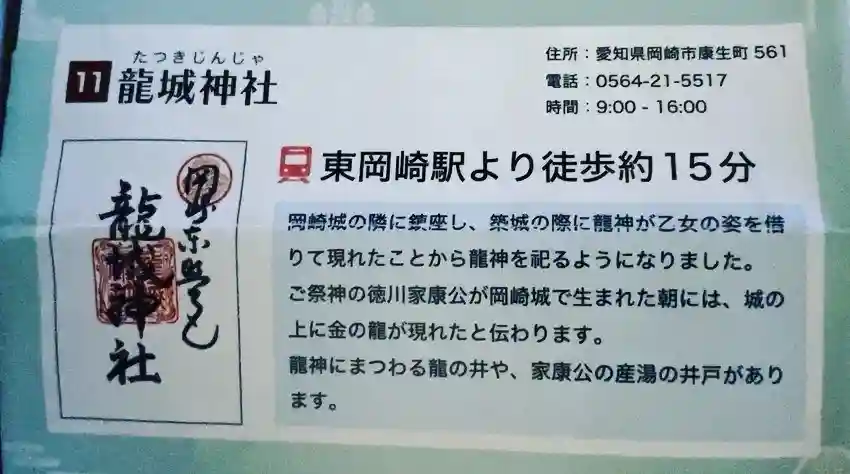 たつきじんじゃ
11 龍城神社
住所：愛知県岡崎市康生町 561
電話：0564-21-5517
時間：9:00 - 16:00
東岡崎駅より徒歩約15分
岡崎城の隣に鎮座し、築城の際に龍神が乙女の姿を借
りて現れたことから龍神を祀るようになりました。
ご祭神の徳川家康公が岡崎城で生まれた朝には、城の
上に金の龍が現れたと伝わります。
龍神にまつわる龍の井や、家康公の産湯の井戸があり
ます。
岡崎東照宮
龍城神社